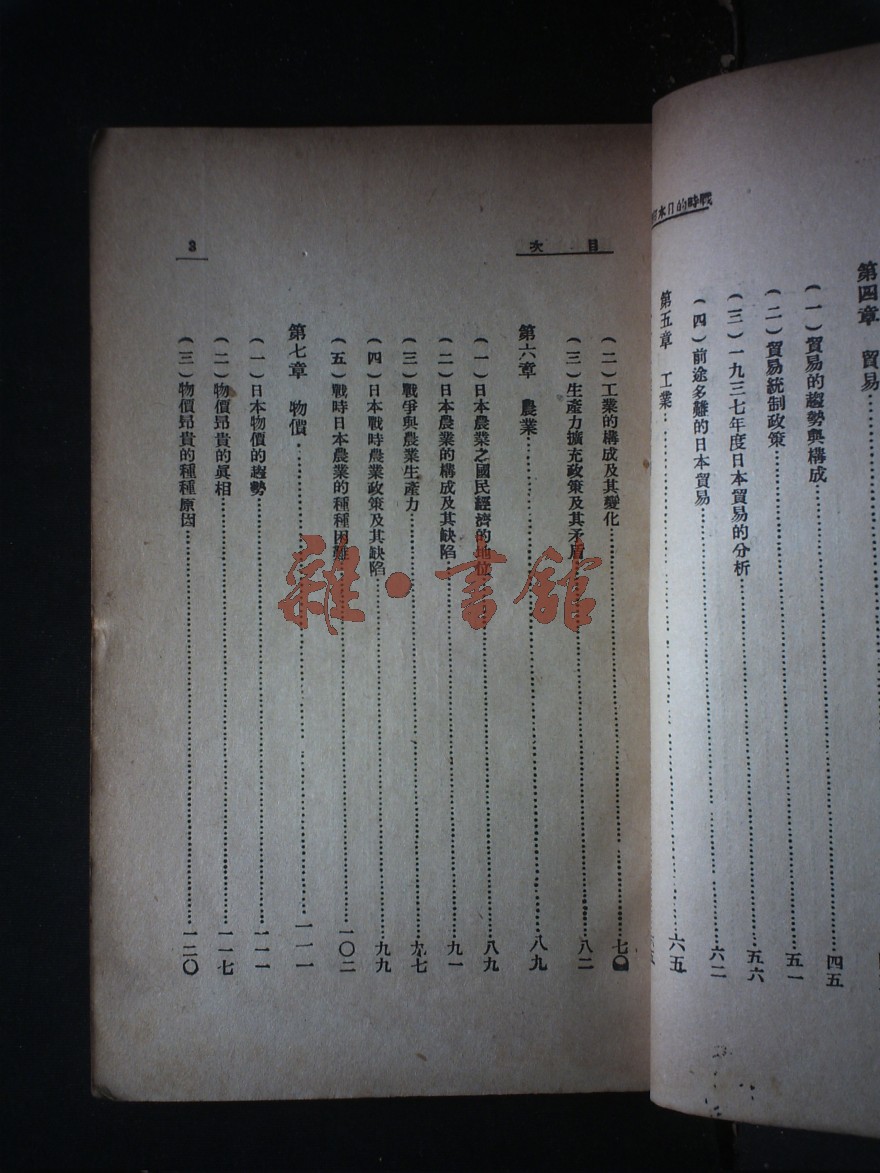 戰時的日本
第四章 貿易
(一)貿易的趨勢與構成 四五
(二)貿易統制政策 五一
(三)一九三七年度日本貿易的分析 五六
(四)前途多難的日本貿易 六二
第五章 工業 六五
目次
(二)工業的構成及其變化 七〇
(三)生產力擴充政策及其矛盾 八二
第六章 農業 八九
(一)日本農業之國民經濟的地位 八九
(二)日本農業的構成及其缺陷 九一
(三)戰爭與農業生產力 九七
(四)日本戰時農業政策及其缺陷 九九
(五)戰時日本農業的種種困難 一〇二
第七章 物價 一一一
(一)日本物價的趨勢 一一一
(二)物價昂貴的眞相 一一七
(三)物價昂貴的種種原因 一二〇
3
雜·書館